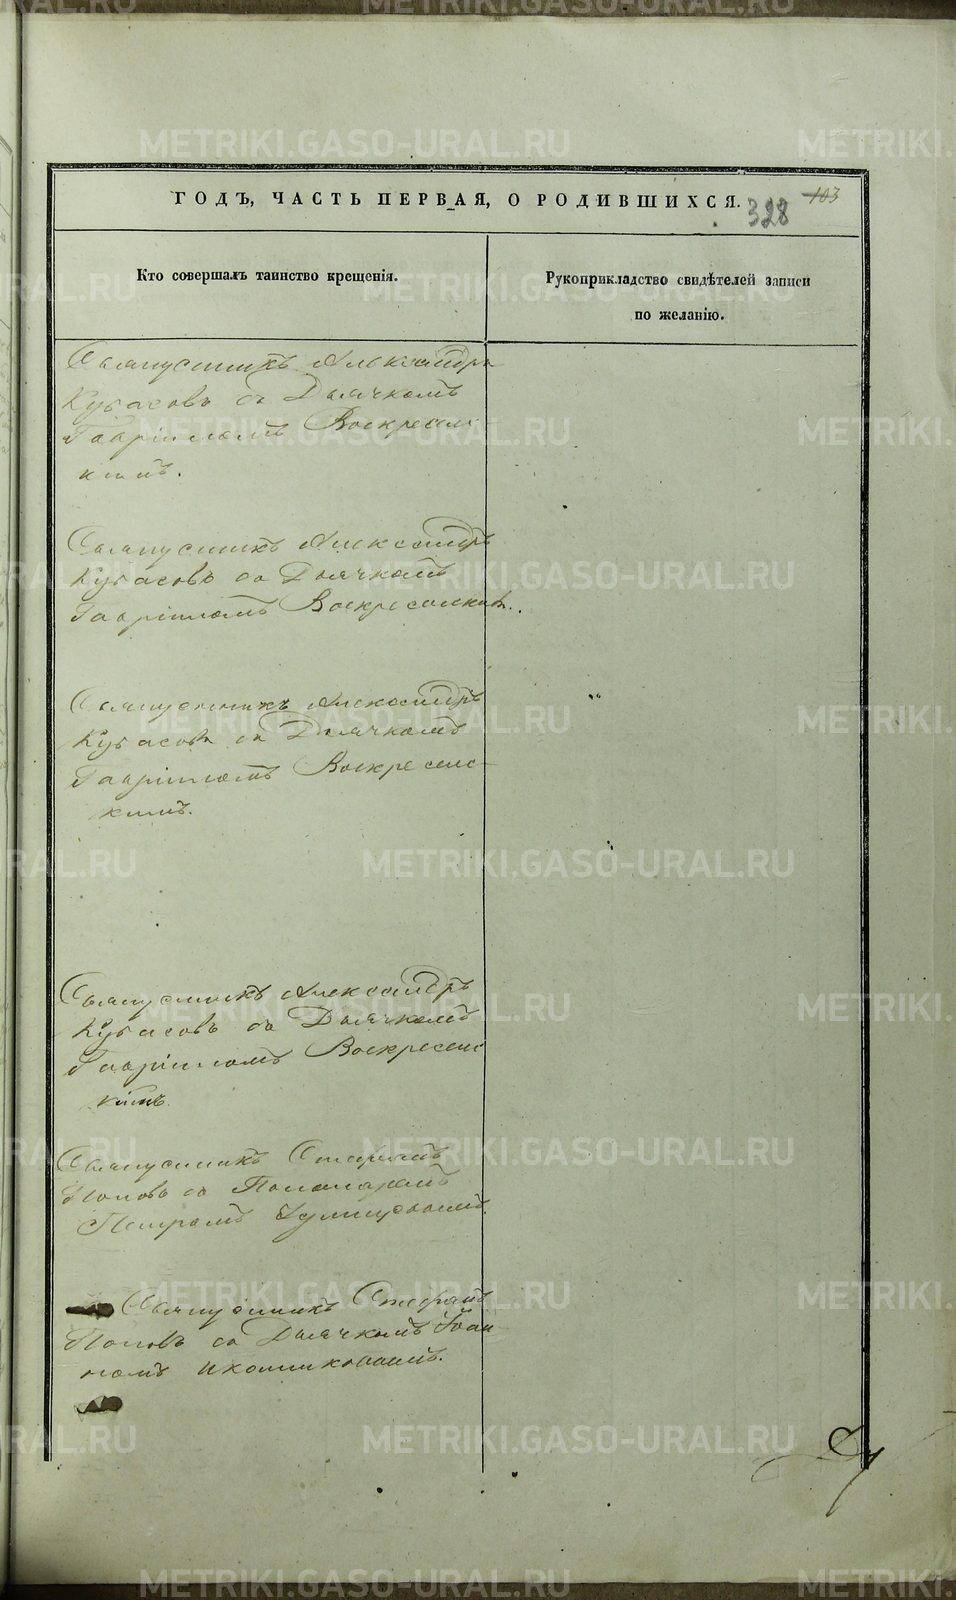 ГОДЪ, ЧАСТЬ ПЕРВАЯ, О РОДИВШИХСЯ.
328
103
Кто совершалъ таинство крещенія.
Рукоприкладство свидѣтелей записи
по желанію.
Священникъ Александръ
Кубасовъ съ Дьячкомъ
Гавріиломъ Воскресенс-
кимъ.
Священникъ Александръ
Кубасовъ съ Дьячкомъ
Гавріиломъ Воскресенскимъ.
Священникъ Александръ
Кубасовъ съ Дьячкомъ
Гавріиломъ Воскресенс-
кимъ.
Священникъ Александръ
Кубасовъ съ Дьячкомъ
Гавріиломъ Воскресенс
кимъ
Священникъ Стефанъ
Поповъ съ Пономаремъ
Петромъ
Священникъ Стефанъ
Поповъ съ Дьячкомъ Іоан-
номъ Иконниковымъ.
METRIKI.GASO-URAL.RU